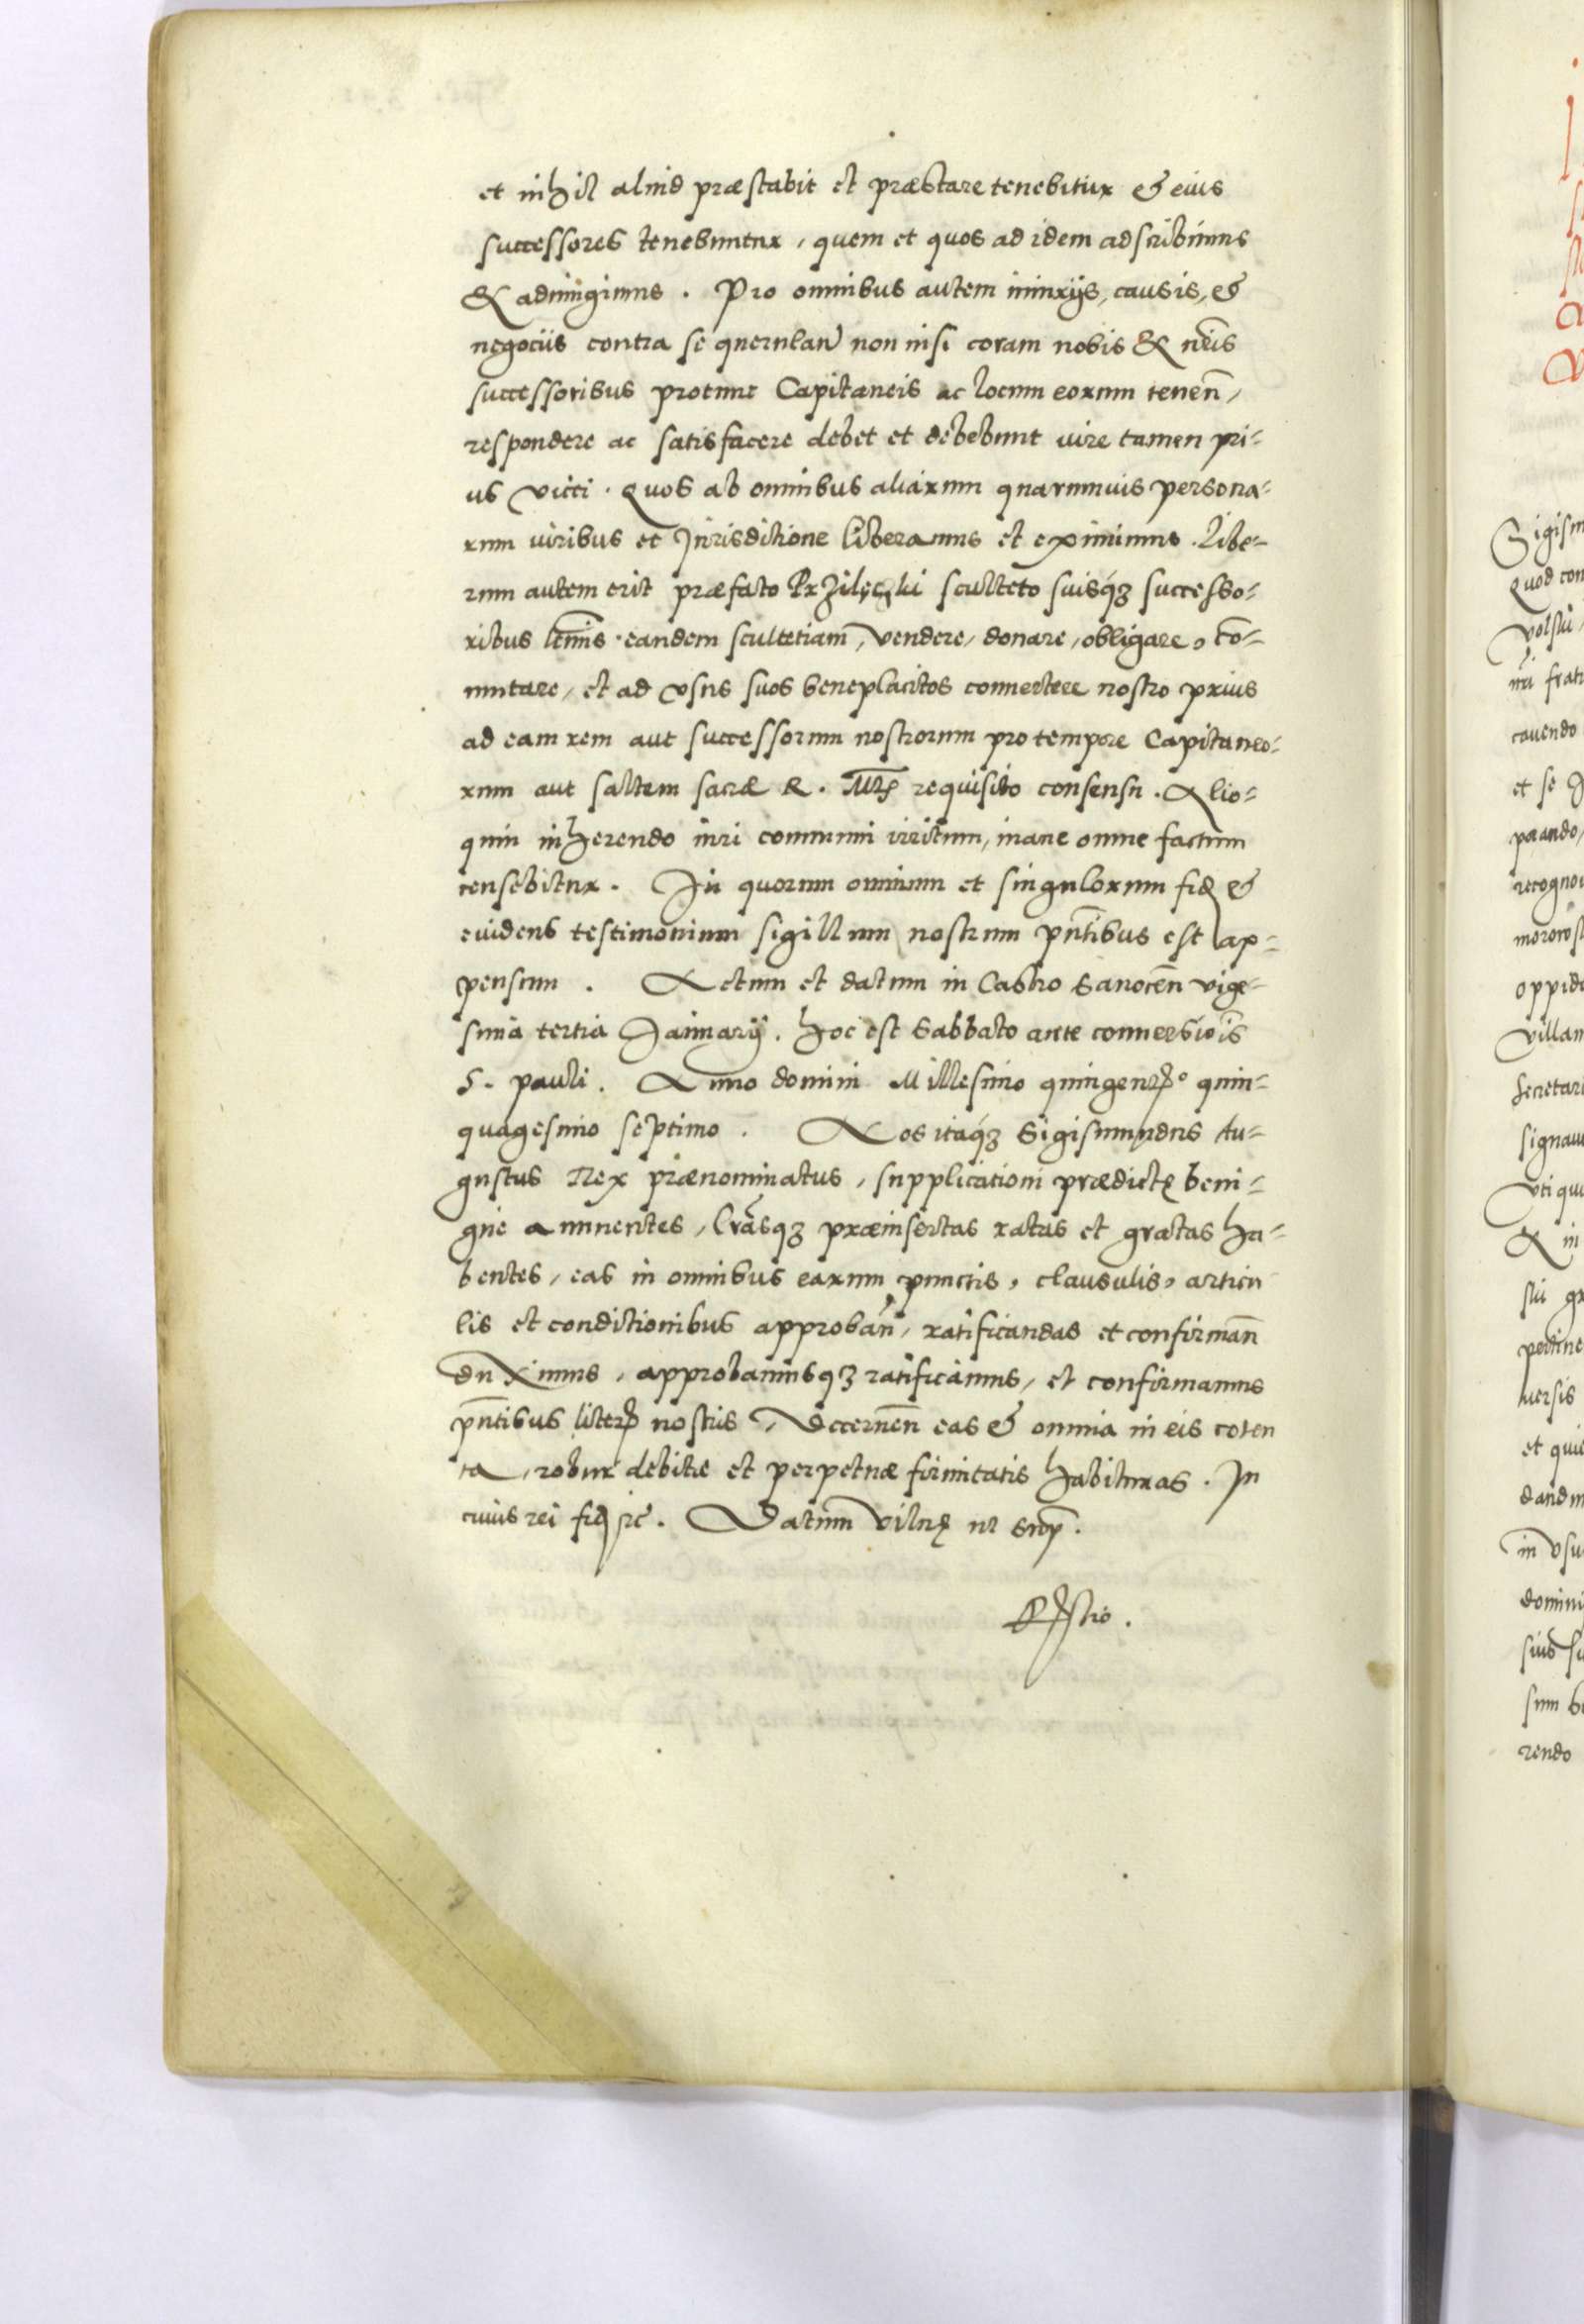 et nihil aliud præstabit et præstare tenebitur & eius
successores tenebuntur, quem et quos ad idem adscribimus
& adiungimus. Pro omnibus autem iniurijs, causis, &
negociis contra se querulan̄ non nisi coram nobis & nr̄is
successoribus protunc Capitaneis ac locum eorum tenen̄,
respondere ac satisfacere debet et debebunt iure tamen pri-
us victi. Quos ab omnibus aliarum quarumuis persona-
rum iuribus et Jurisditione liberamus et eximimus. Libe-
rum autem erit præfato Przilęcki sculteto suisq́ȝ successo-
ribus ltīmis eandem scultetiam, vendere, donare, obligare, cō-
mutare, et ad vsus suos beneplacitos conuertere nostro prius
ad eam rem aut successorum nostrorum pro tempore Capitaneo-
rum aut saltem sacræ R. Mtīs requisito consensu. Alio-
quin inherendo iuri communi irritum, inane omne factum
censebitur. In quorum omnium et singulorum fidē &
euidens testimonium sigillum nostrum pn̄tibus est ap-
pensum. Actum et datum in Castro Sanocen̄ vige-
sima tertia Januarij. hoc est Sabbato ante conuersiōis
S. pauli. Anno domini Millesimo quingenteº quin-
quagesimo septimo. Nos itaq́ȝ Sigismundus Au-
gustus Rex prænominatus, supplicationi prædictę beni-
gne annuentes, Lrāsqȝ præinsertas ratas et gratas ha-
bentes, eas in omnibus earum punctis, clausulis, articu
lis et conditionibus approban̄, ratificandas et confirman̄
duximus, approbamusqȝ ratificamus, et confirmamus
pn̄tibus literis nostris, Decernen̄ eas & omnia in eis coten
ta, robur debitæ et perpetuæ firmitatis habituras. In
cuius rei fidē etc̄. Datum Vilnę ut sup̄.
Sigism
Quod con
volski
nri frat
cauendo
et se
parando,
recogno
moro
oppid
villam
Secretari
signau
vti qu
& in
ski gr
pertine
uersis
et quie
dandu
in vsu
domini
sius
sum b
rendo